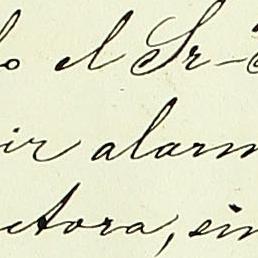 lo el Sr-
ir alarm
ctora, sin